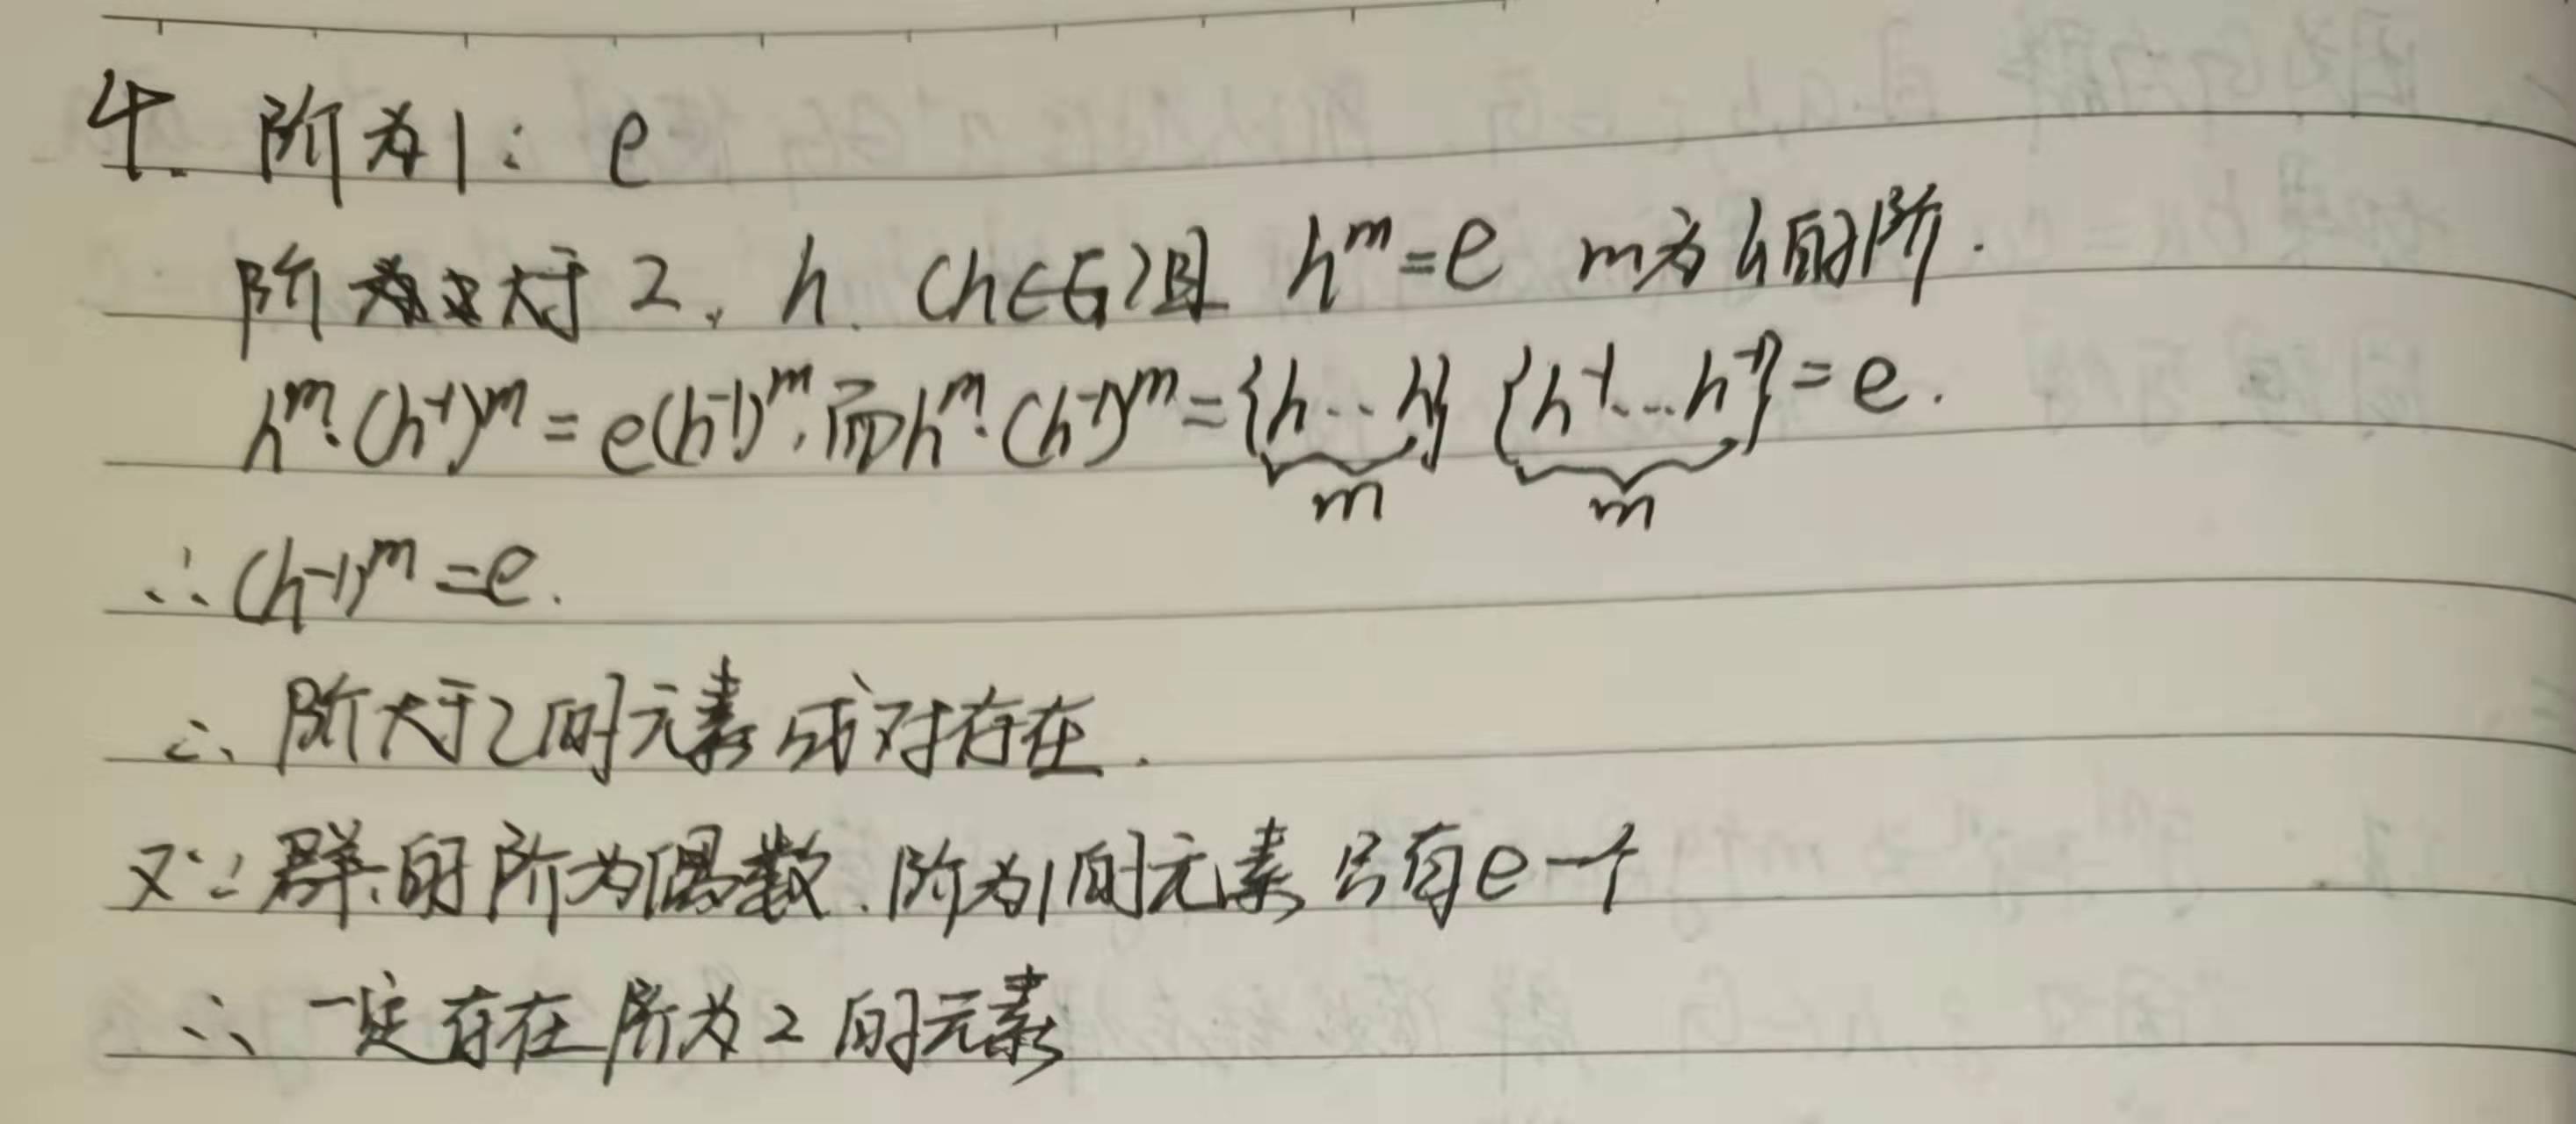 4. 阶为1: e
阶大于2, h. (h∈G)且 h^m=e m为h的阶.
h^m·(h^-1)^m=e(h^-1)^m,而h^m·(h^-1)^m={h...h} {h^-1...h^-1}=e.
m m
∴(h^-1)^m=e.
∴阶大于2的元素成对存在.
又∵群的阶为偶数.阶为1的元素只有e一个
∴一定存在阶为2的元素